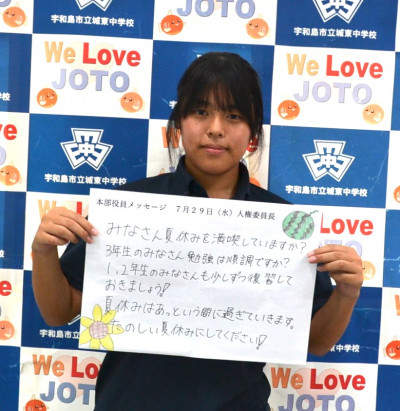 We Love
JOTO
宇和島市立城東中学校
宇和島市立城東中学校
We Love
JOTO
We Love
JOTO
宇和島市立城東中学校
宇和島市立城東中学校
本部役員メッセージ 7月29日(水)人権委員長
みなさん夏休みを満喫していますか?
3年生のみなさん勉強は順調ですか?
1、2年生のみなさんも少しずつ復習して
おきましょう!
夏休みはあっという間に過ぎていきます。
たのしい夏休みにしてください!
We Love
JOTO
We Love
JOTO